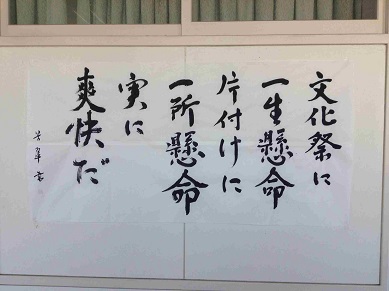 文化祭に
一生懸命
片付けに
一所懸命
実に
爽快だ